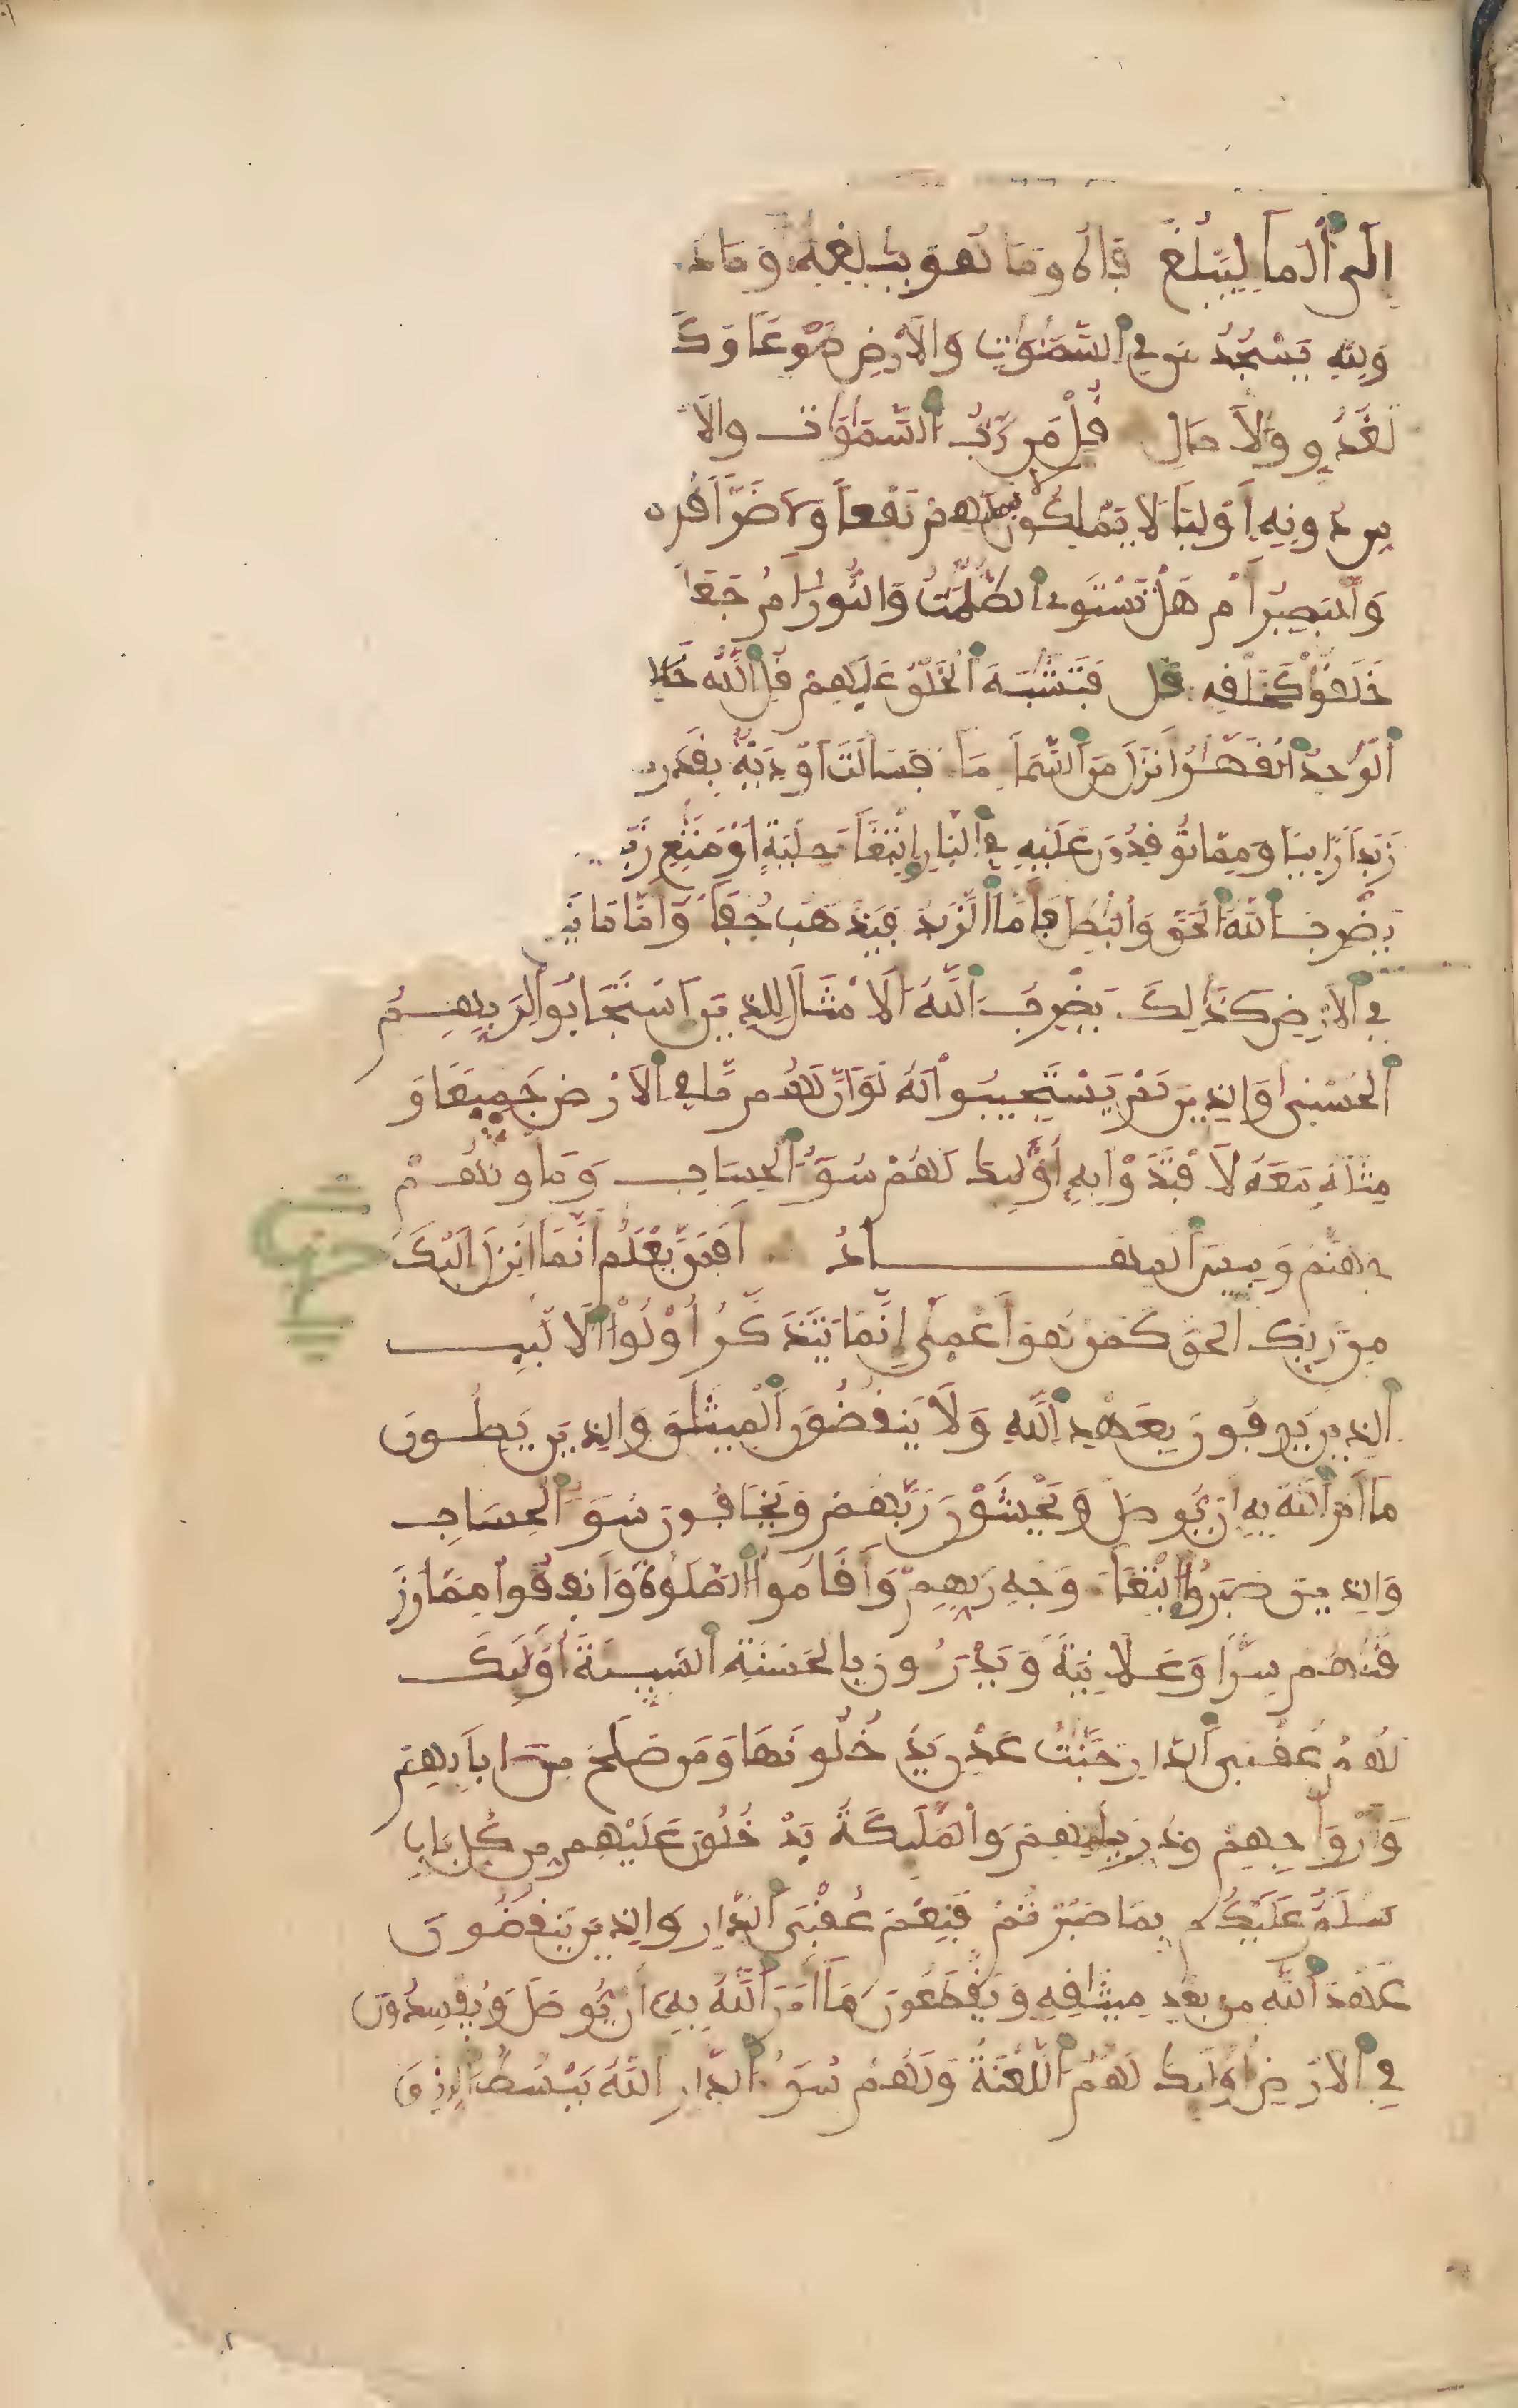 إلى ألما ليبلغ فاه وما هو ببلغه وما د
ولله يسجد من في السموت والارض طوعا وك
لغدو والاصال قل من رب السموات والا
من دونه أوليا لا يملكون لأنفسهم نفعا ولا ضرا قل ه
والبصير أم هل تستوى الظلمت والنور أم جعلـ
خلقوا كخلقه فتشبه الخلق عليهم قل الله خلـ
الوحد القهر أنزل من السما ما فسالت أودية بقدر
زبدا رابيا ومما توقدون عليه في النار ابتغا حلية أو متع زبـ
يضرب الله الحق والبطل فأما الزبد فيذهب جفا وأما ما ينـ
في الارض كذلك يضرب الله الامثال للذين استجابوا لربهم
الحسنى والذين لم يستجيبوا له لو ان لهم ما في الارض جميعا و
مثله معه لافتدوا به أولئك لهم سو الحساب وماويهم
جهنم وبيس المهاد أفمن يعلم أنما أنزل اليك
من ربك الحق كمن هو أعمى إنما يتذكر أولوا الالبب
الذين يوفون بعهد الله ولا ينقضون الميثق والذين يصلون
ما أمر الله به أن يوصل ويخشون ربهم ويخافون سو الحساب
والذين صبروا ابتغا وجه ربهم وأقاموا الصلوة وأنفقوا مما رز
قنهم سرا وعلانية ويدرون بالحسنة السيية أولئك
لهم عقبى الدار جنت عدن يدخلونها ومن صلح من ابايهم
وأزواجهم وذريتهم والملئكة يدخلون عليهم من كل باب
سلم عليكم بما صبرتم فنعم عقبى الدار والذين ينقضون
عهد الله من بعد ميثاقه ويقطعون ما أمر الله به أن يوصل ويفسدون
في الارض أولئك لهم اللعنة ولهم سو الدار الله يبسط الرزق